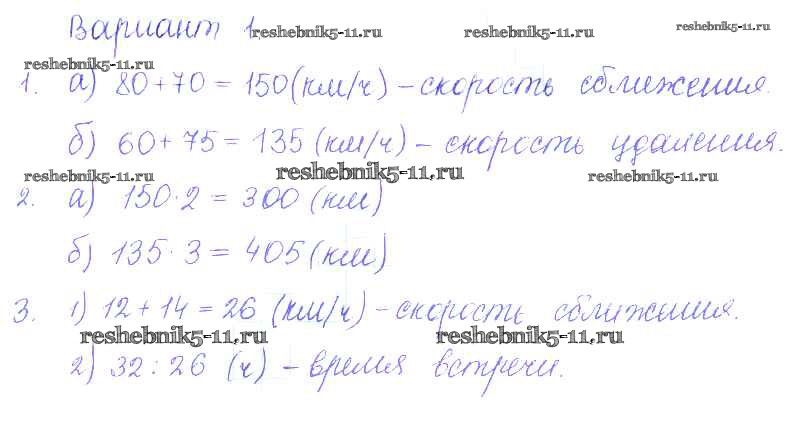 Вариант 1
reshebnik5-11.ru reshebnik5-11.ru reshebnik5-11.ru
reshebnik5-11.ru
1. а) 80+70=150(км/ч) – скорость сближения.
б) 60+75=135 (км/ч) – скорость удаления.
reshebnik5-11.ru reshebnik5-11.ru reshebnik5-11.ru
2. а) 150·2=300 (км)
б) 135·3=405 (км)
3. 1) 12+14=26 (км/ч) – скорость сближения.
reshebnik5-11.ru reshebnik5-11.ru
2) 32:26 (ч) – время встречи.